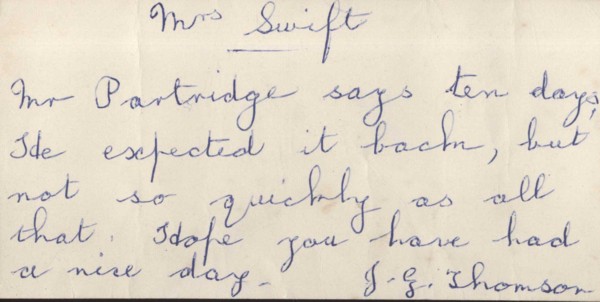 Mrs Swift
Mr Partridge says ten days,
Ide expected it back, but
not so quickly as all
that. I hope you have had
a nice day. J. G. Thomson